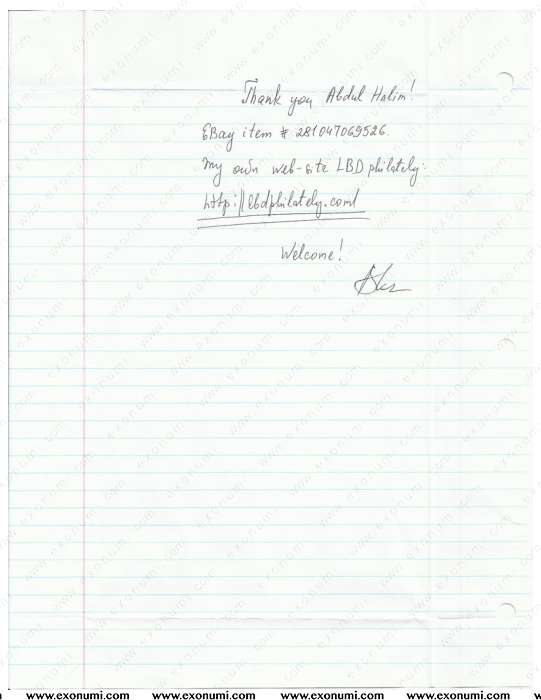 Thank you Abdul Halim!
EBay item # 281047069526.
My own web-site LBD philately.
http://lbdphilately.com/
Welcome!
www.exonumi.com www.exonumi.com www.exonumi.com www.exonumi.com